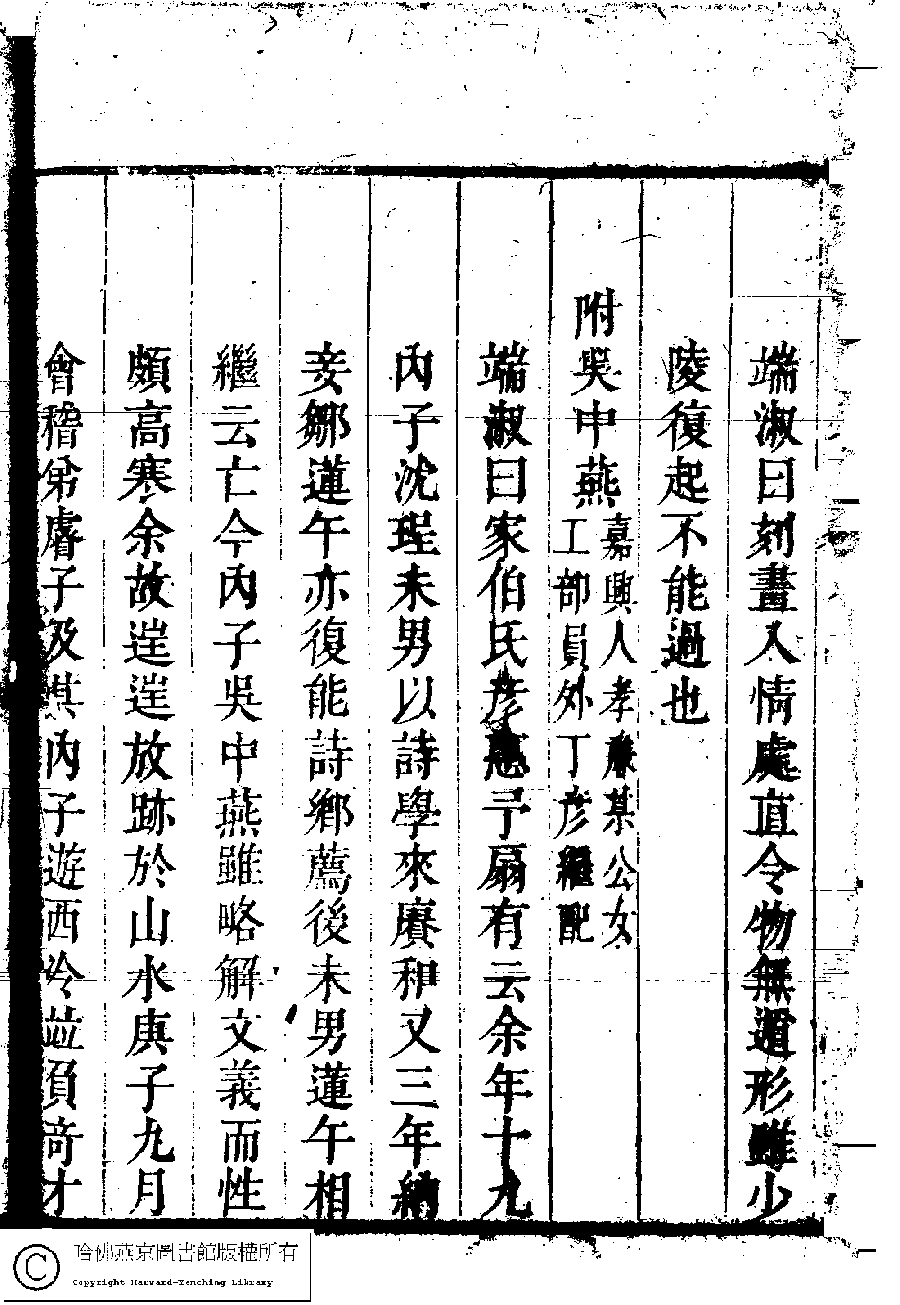 端淑曰刻畫人情處直令物無遁形雖少
陵復起不能過也
附吳中燕嘉興人孝廉某公女
工部員外丁彥繼配
端淑曰家伯氏彥惠予扇有云余年十九
內子沈珵未男以詩學來賡和又三年納
妾鄒蓮午亦復能詩鄉薦後未男蓮午相
繼云亡今內子吳中燕雖略解文義而性
頗高寒余故逞逞放跡於山水庚子九月
會稽弟膚子及其內子遊西泠並負奇才
哈佛燕京圖書館版權所有
Copyright Harvard-Yenching Library